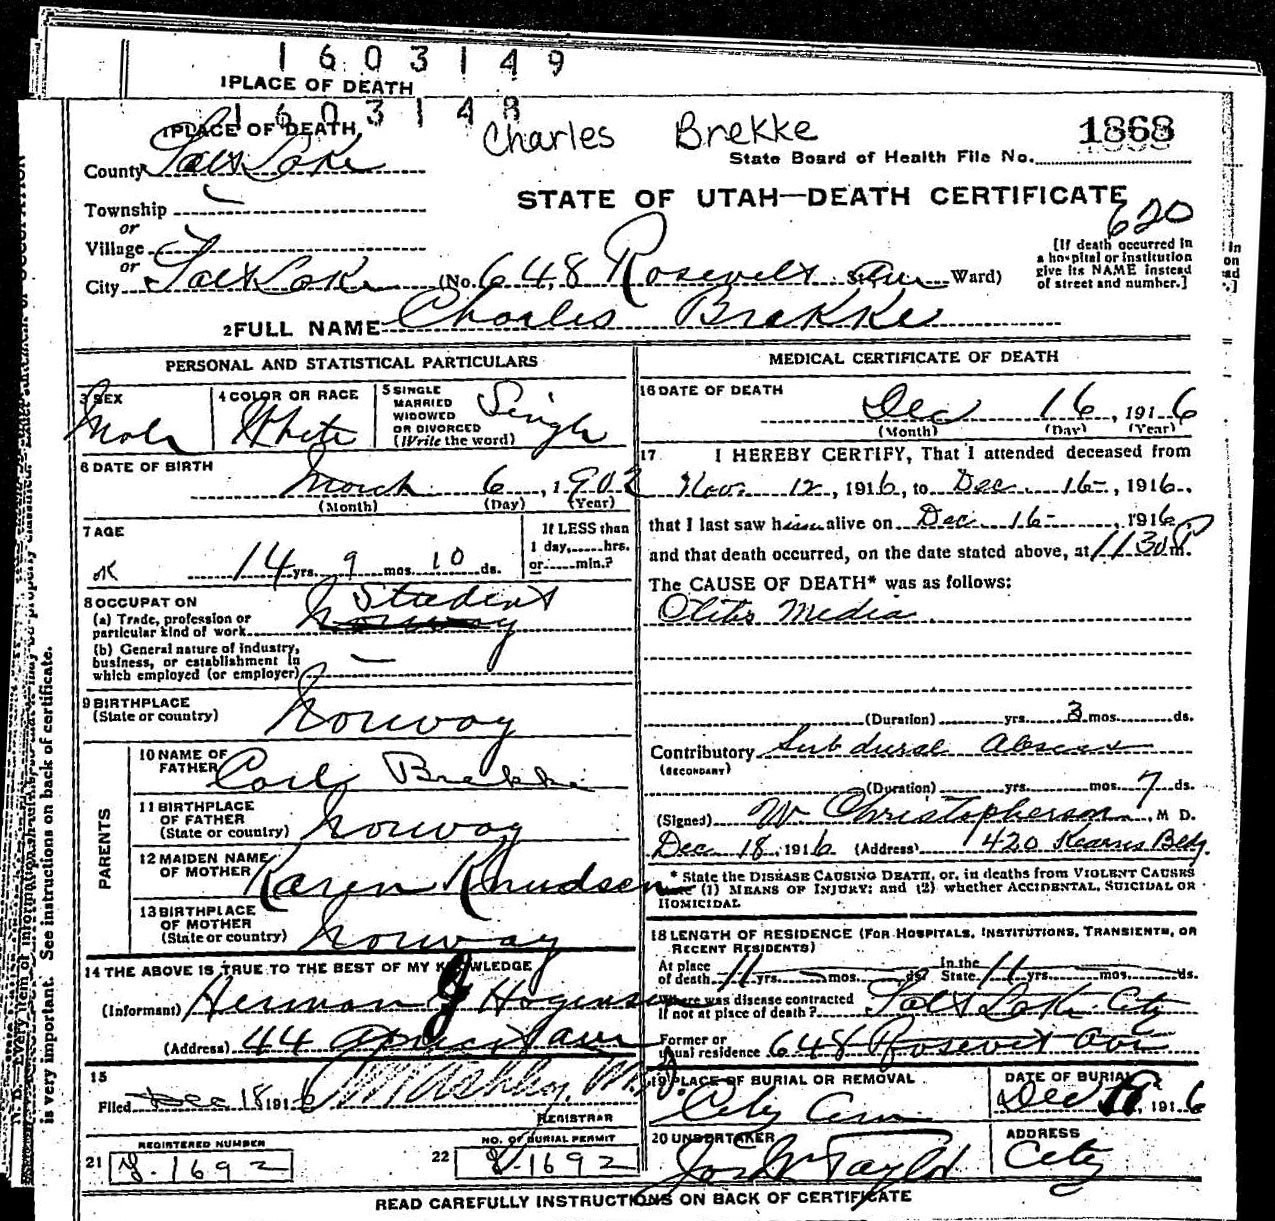 1603149
1 PLACE OF DEATH
1603148
1 PLACE OF DEATH
Charles Brekke
1868
State Board of Health File No.
County Salt Lake
STATE OF UTAH—DEATH CERTIFICATE
620
Township
or
Village
or
City Salt Lake (No. 648 Rosevelt St. Ave Ward)
[If death occurred in
a hospital or institution
give its NAME instead
of street and number.]
2 FULL NAME Charles Brekke
PERSONAL AND STATISTICAL PARTICULARS
3 SEX
Male
4 COLOR OR RACE
White
5 SINGLE
MARRIED
WIDOWED
OR DIVORCED
(Write the word)
Single
6 DATE OF BIRTH
March 6, 1902
(Month) (Day) (Year)
7 AGE
OK 14 yrs. 9 mos. 10 ds.
If LESS than
1 day,......hrs.
or......min.?
8 OCCUPATION
Student
(a) Trade, profession or
particular kind of work Norway
(b) General nature of industry,
business, or establishment in
which employed (or employer)
9 BIRTHPLACE
(State or country) Norway
PARENTS
10 NAME OF
FATHER Carl Brekke
11 BIRTHPLACE
OF FATHER
(State or country) Norway
12 MAIDEN NAME
OF MOTHER Karen Knudsen
13 BIRTHPLACE
OF MOTHER
(State or country) Norway
14 THE ABOVE IS TRUE TO THE BEST OF MY KNOWLEDGE
(Informant) Herman J Hogensen
(Address) 44
15
Filed Dec 18 1916 M.D.
REGISTRAR
REGISTERED NUMBER
21 Y-1692
NO. OF BURIAL PERMIT
22 Y-1692
MEDICAL CERTIFICATE OF DEATH
16 DATE OF DEATH
Dec 16, 1916
(Month) (Day) (Year)
17 I HEREBY CERTIFY, That I attended deceased from
Nov. 12, 1916, to Dec. 16, 1916,
that I last saw him alive on Dec 16, 1916,
and that death occurred, on the date stated above, at 1130 P m.
The CAUSE OF DEATH* was as follows:
Otitis Media
(Duration) yrs. 3 mos. ds.
Contributory Subdural Abscess
(SECONDARY)
(Duration) yrs. mos. 7 ds.
(Signed) W Christopherson, M D.
Dec 18, 1916 (Address) 420 Kearns Bldg.
* State the DISEASE CAUSING DEATH, or, in deaths from VIOLENT CAUSES
state (1) MEANS OF INJURY; and (2) whether ACCIDENTAL, SUICIDAL OR
HOMICIDAL
18 LENGTH OF RESIDENCE (FOR HOSPITALS, INSTITUTIONS, TRANSIENTS, OR
RECENT RESIDENTS)
At place
of death 11 yrs. mos. ds.
In the
State 11 yrs. mos. ds.
Where was disease contracted
if not at place of death? Salt Lake City
Former or
usual residence 648 Rosevelt Ave
19 PLACE OF BURIAL OR REMOVAL
City Cem
DATE OF BURIAL
Dec 19, 1916
20 UNDERTAKER
Jos Wm Taylor
ADDRESS
City
READ CAREFULLY INSTRUCTIONS ON BACK OF CERTIFICATE
is very important. See instructions on back of certificate.